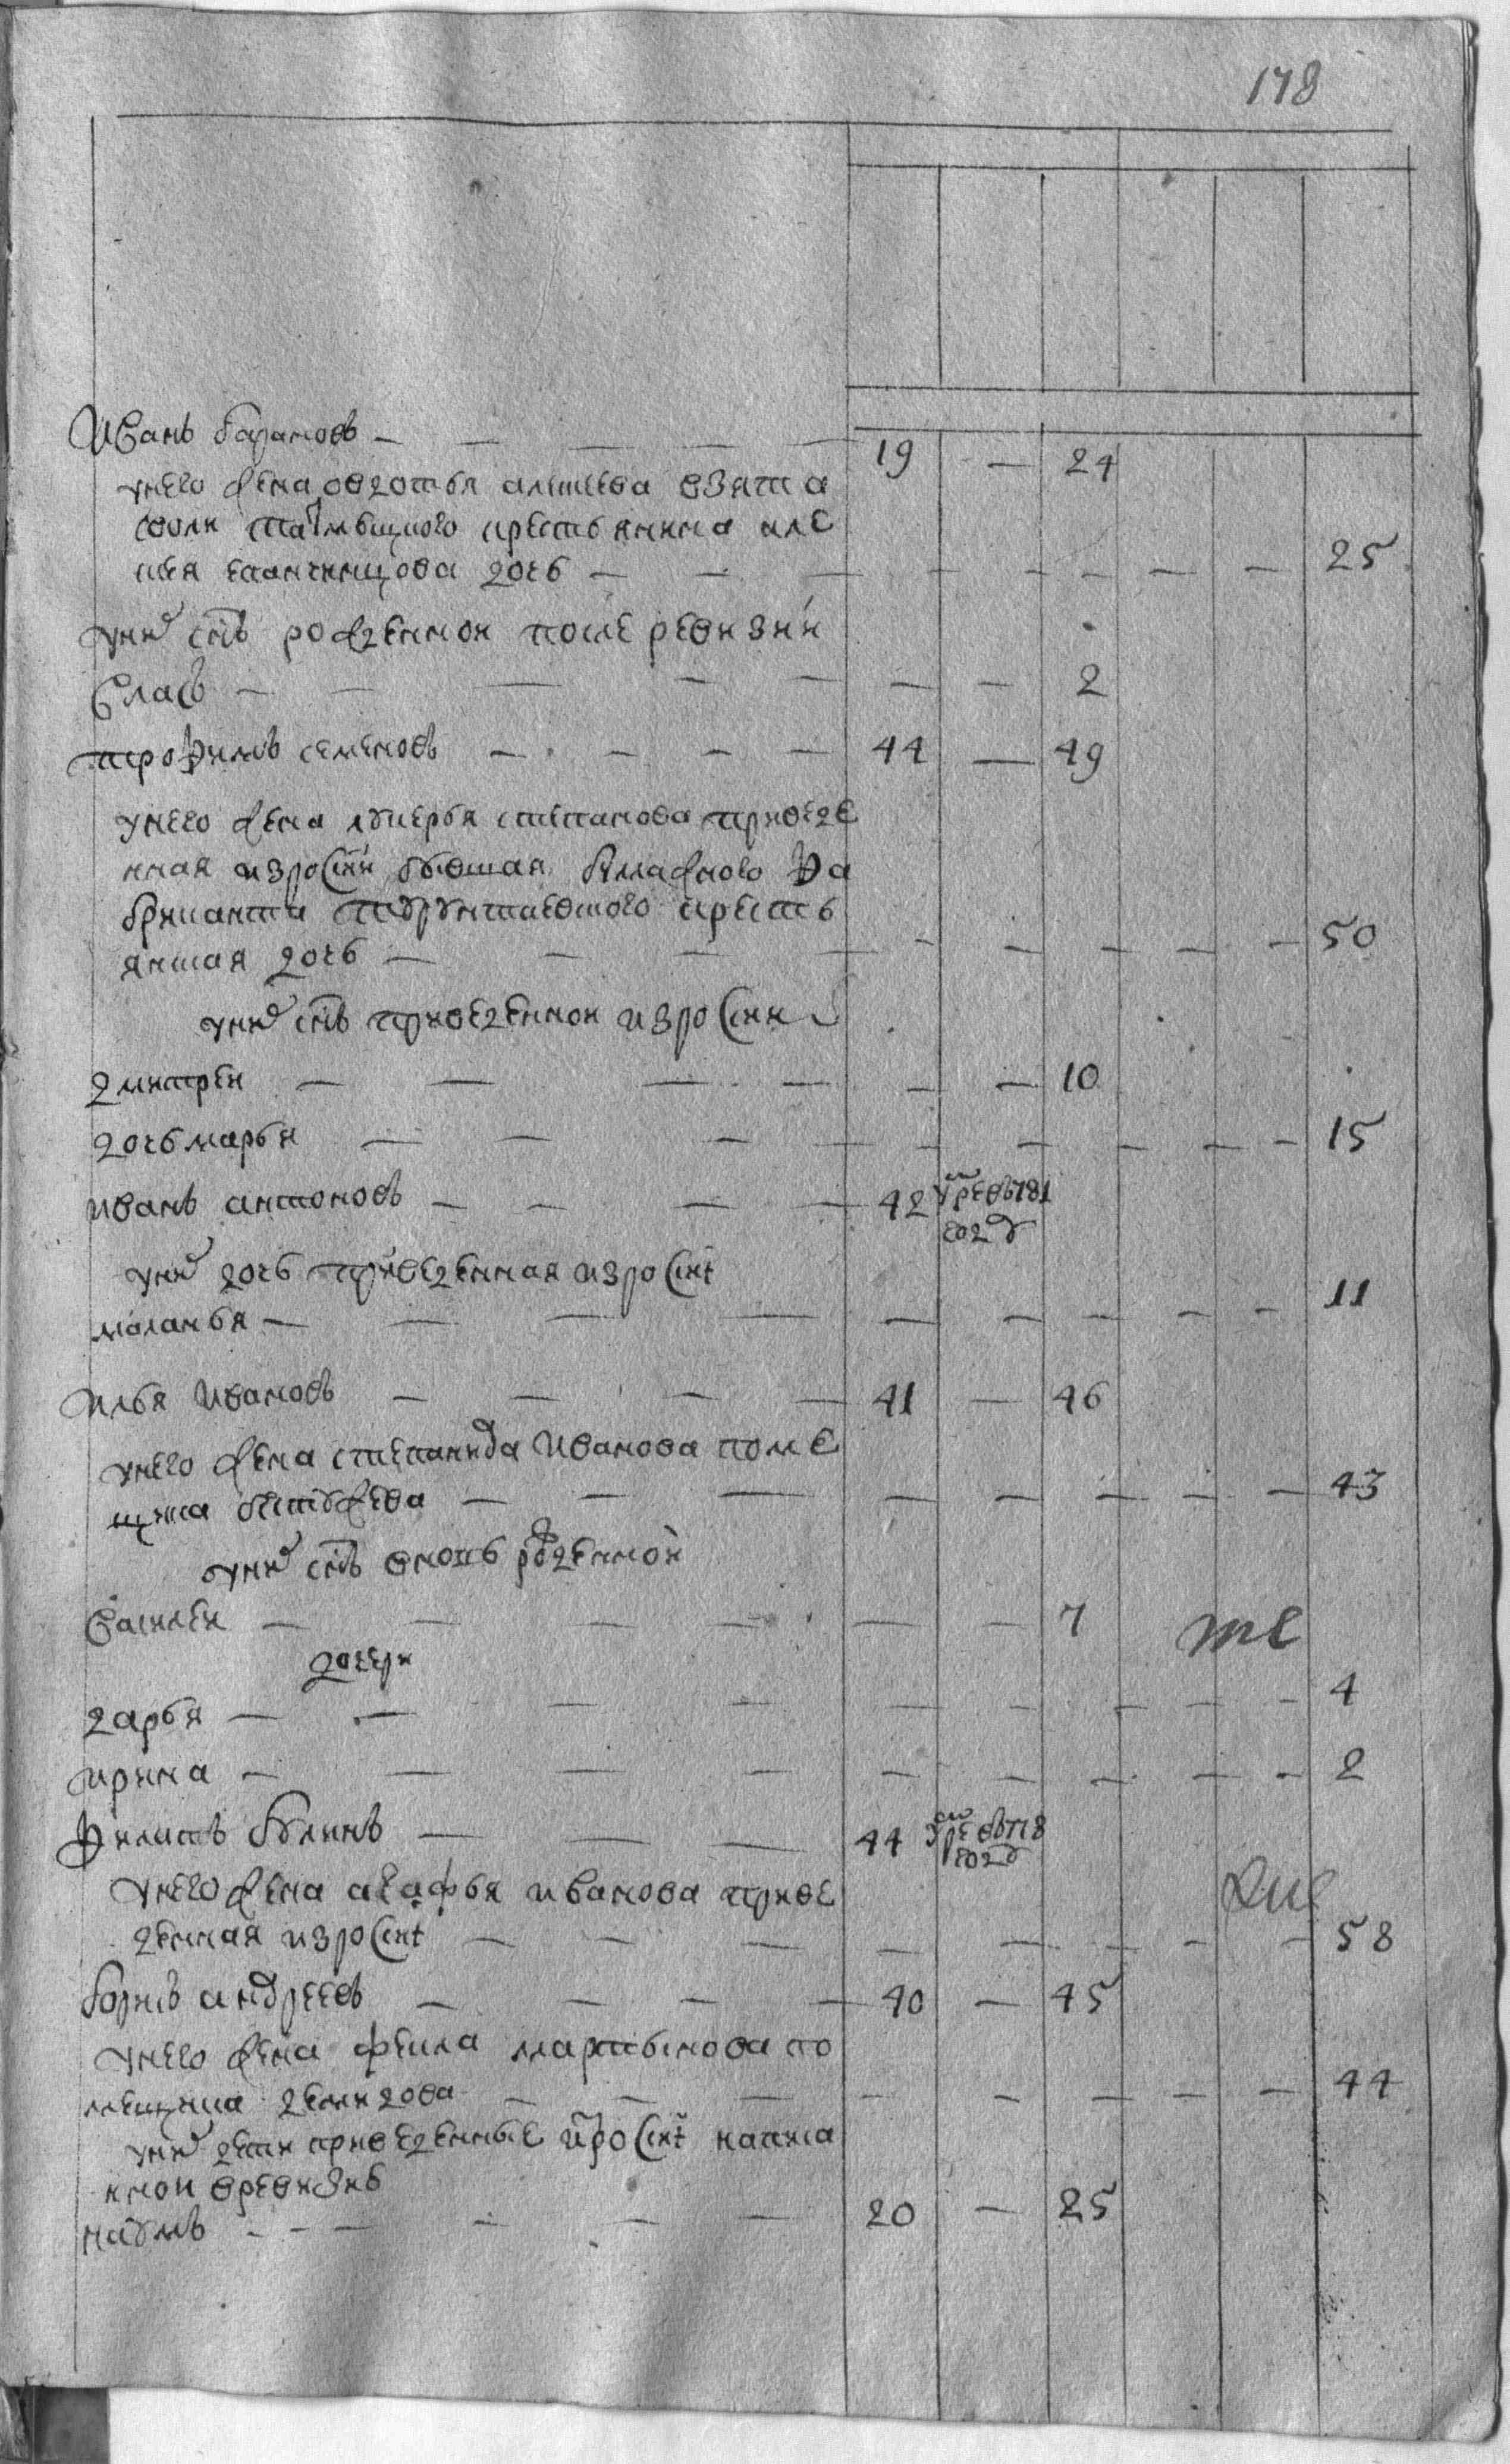 178
Иванъ барановъ — 19 — 24
унего жена овдотья алексеева взята
крестьянина але
ксея дочь — 25
унихъ сынъ рожденной после ревизии
Власъ — 2
трофимъ семеновъ — 44 — 49
унего жена лукерья степанова привезе
нная изросии бывшая фа
бриканта кресть
янская дочь — 50
унихъ сынъ привезенной изросии
дмитреи — 10
дочь марья — 15
иванъ антоновъ — 42 умре въ 781
году
унихъ дочь привезенная изросии
маланья — 11
илья ивановъ — 41 — 46
унего жена степанида иванова поме
щика бестужева — 43
унихъ сынъ вновь рожденной
василеи — 7
дочери
дарья — 4
ирина — 2
филипъ булинъ — 44 умре въ 778
году
унего жена агафья иванова приве
зенная изросии — 58
борисъ андреевъ — 40 — 45
унего жена фекла мартынова по
мещика демидова — 44
унихъ дети привезенные изросии написа
нной вревизие
наумъ — 20 — 25